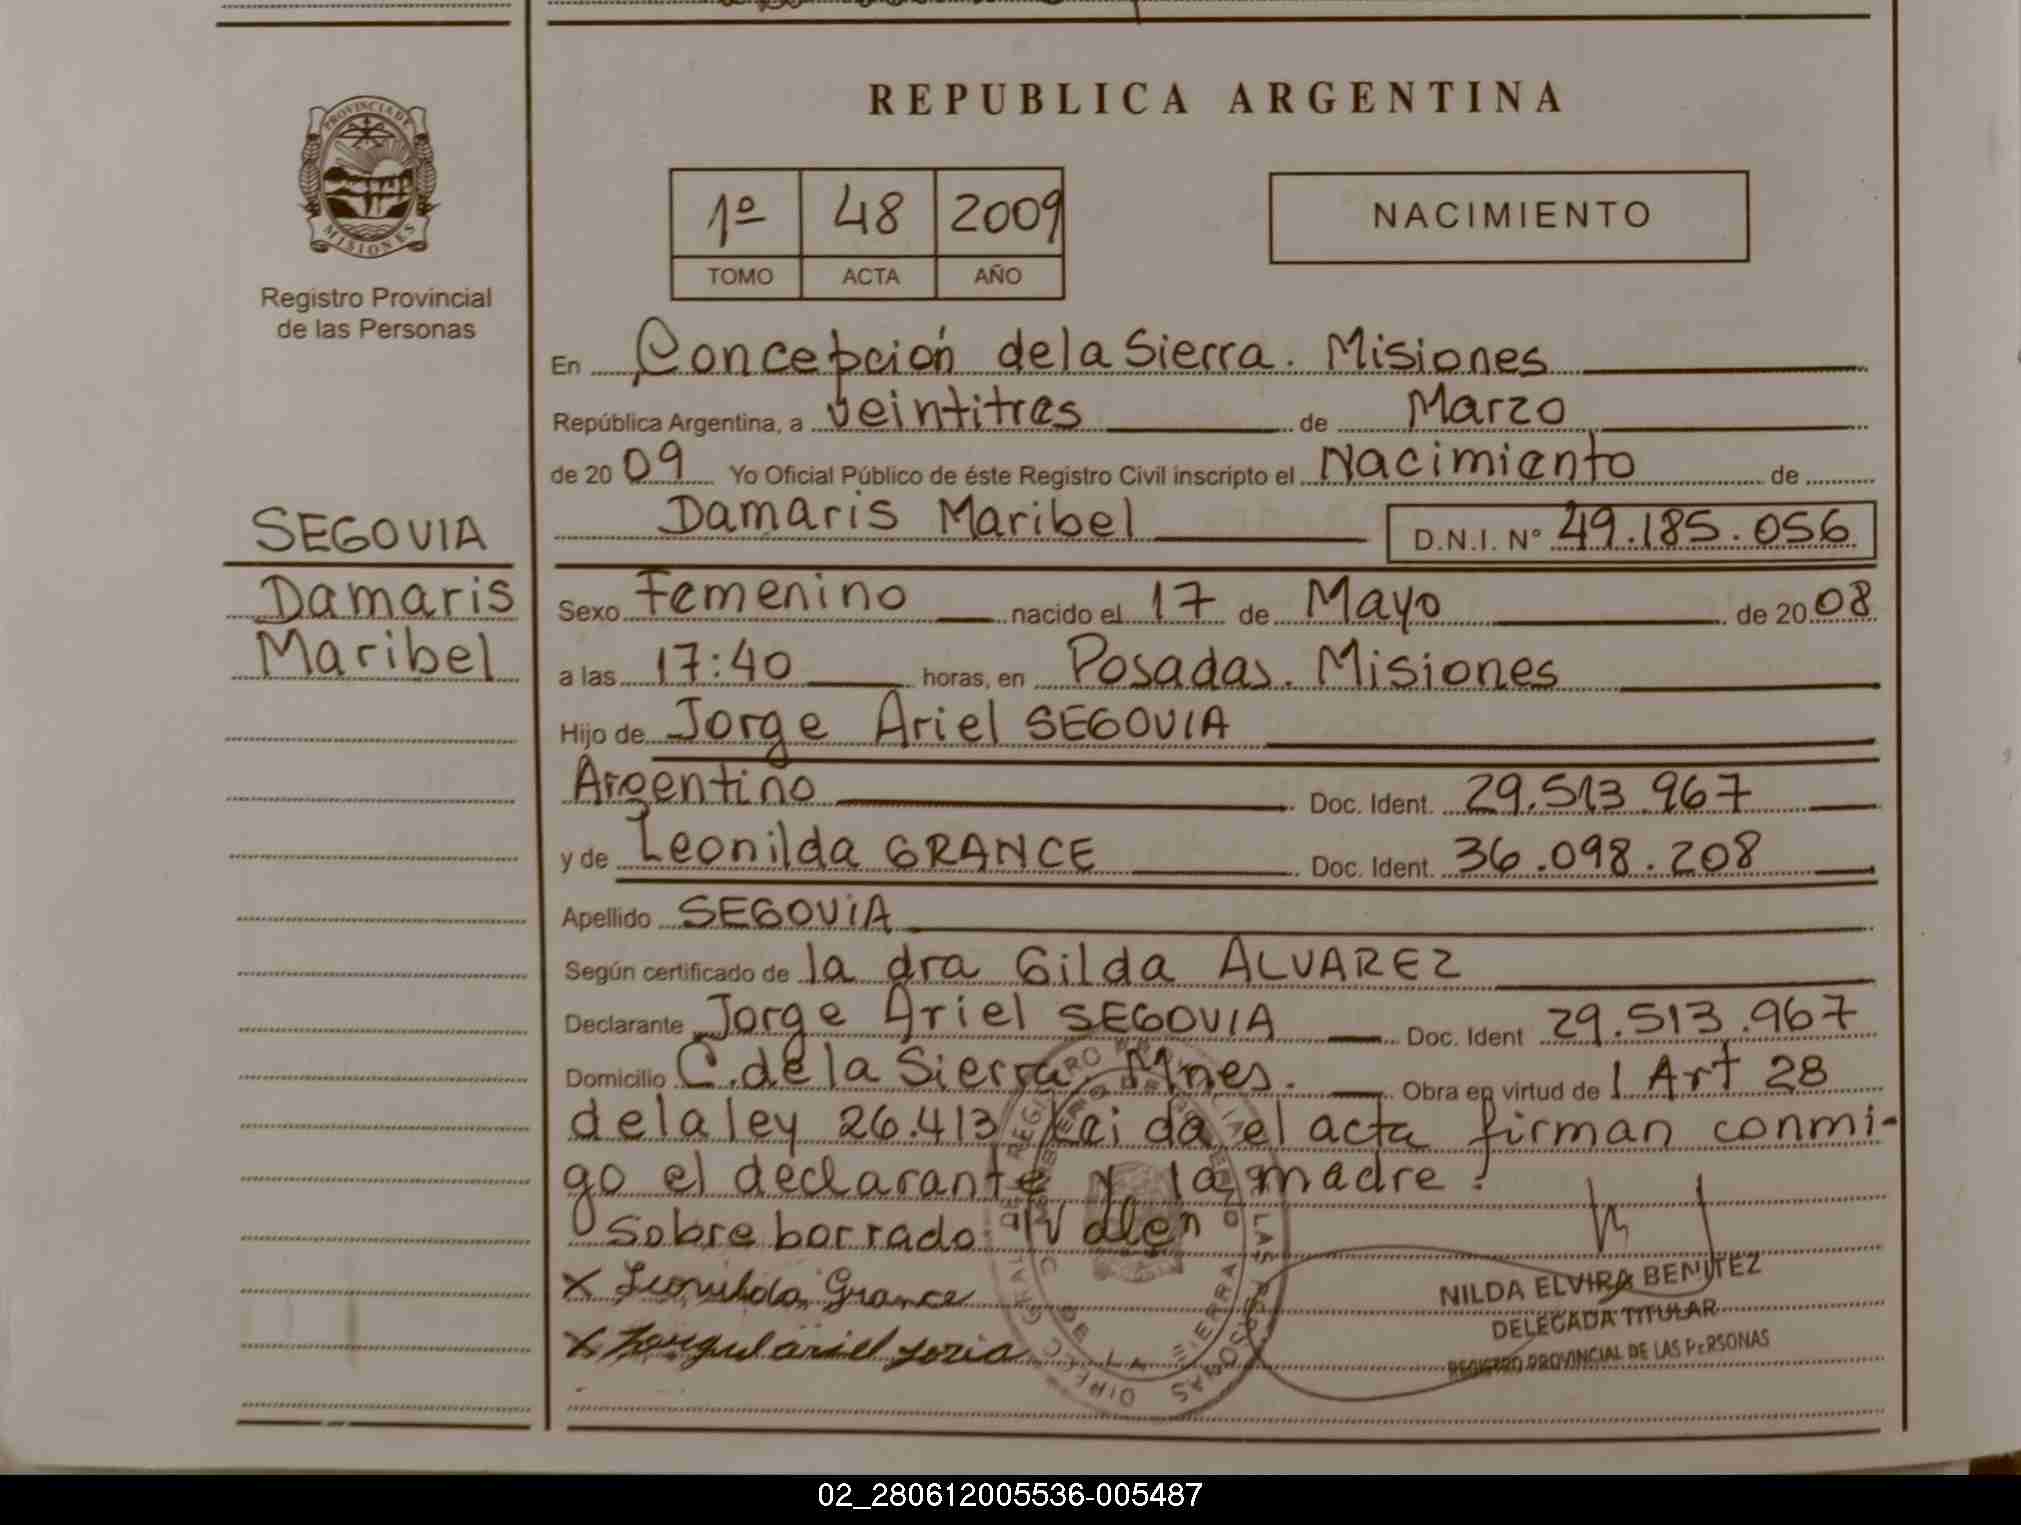 REPUBLICA ARGENTINA
PROVINCIA DE MISIONES
Registro Provincial
de las Personas
1º 48 2009
TOMO ACTA AÑO
NACIMIENTO
En Concepción de la Sierra. Misiones
República Argentina, a veintitres de Marzo
de 2009 Yo Oficial Público de éste Registro Civil inscripto el Nacimiento de
Damaris Maribel D.N.I. Nº 49.185.056
SEGOVIA
Damaris
Maribel
Sexo Femenino nacido el 17 de Mayo de 2008
a las 17:40 horas, en Posadas. Misiones
Hijo de Jorge Ariel SEGOVIA
Argentino Doc. Ident. 29.513.967
y de Leonilda GRANCE Doc. Ident. 36.098.208
Apellido SEGOVIA
Según certificado de la dra Gilda ALVAREZ
Declarante Jorge Ariel SEGOVIA Doc. Ident 29.513.967
Domicilio C. de la Sierra Mnes. Obra en virtud de l Art 28
de la ley 26.413 Leida el acta firman conmi-
go el declarante y la madre.
Sobre borrado Valen
x Leonilda Grance
x ariel
NILDA ELVIRA BENITEZ
DELEGADA TITULAR
REGISTRO PROVINCIAL DE LAS PERSONAS
02_280612005536-005487